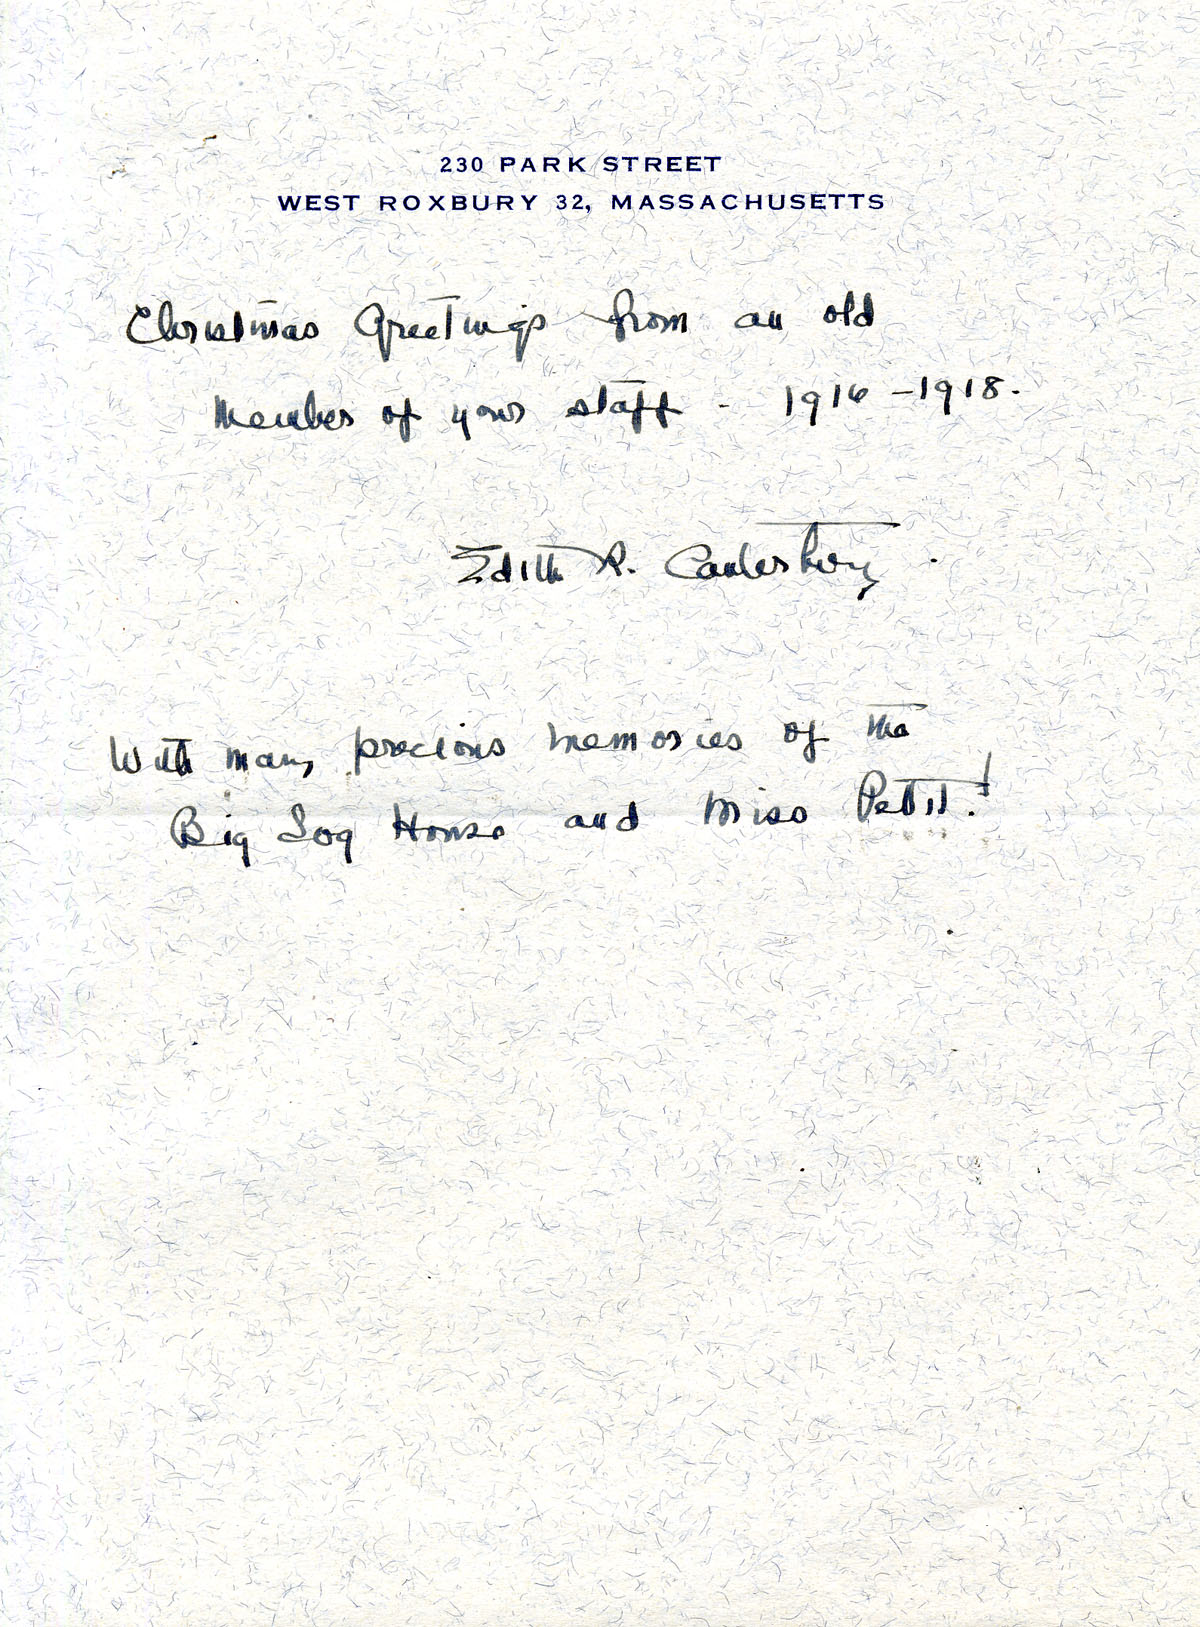 230 PARK STREET
WEST ROXBURY 32, MASSACHUSETTS
Christmas Greetings from an old
member of your staff - 1916 - 1918.
Edith R. Canterbury.
With many precious memories of the
Big Log House and Miss Pettit!